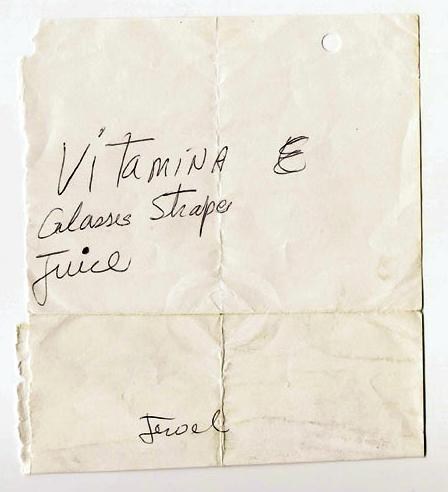 Vitamina E
Glasses Strape
Juice
Jewel